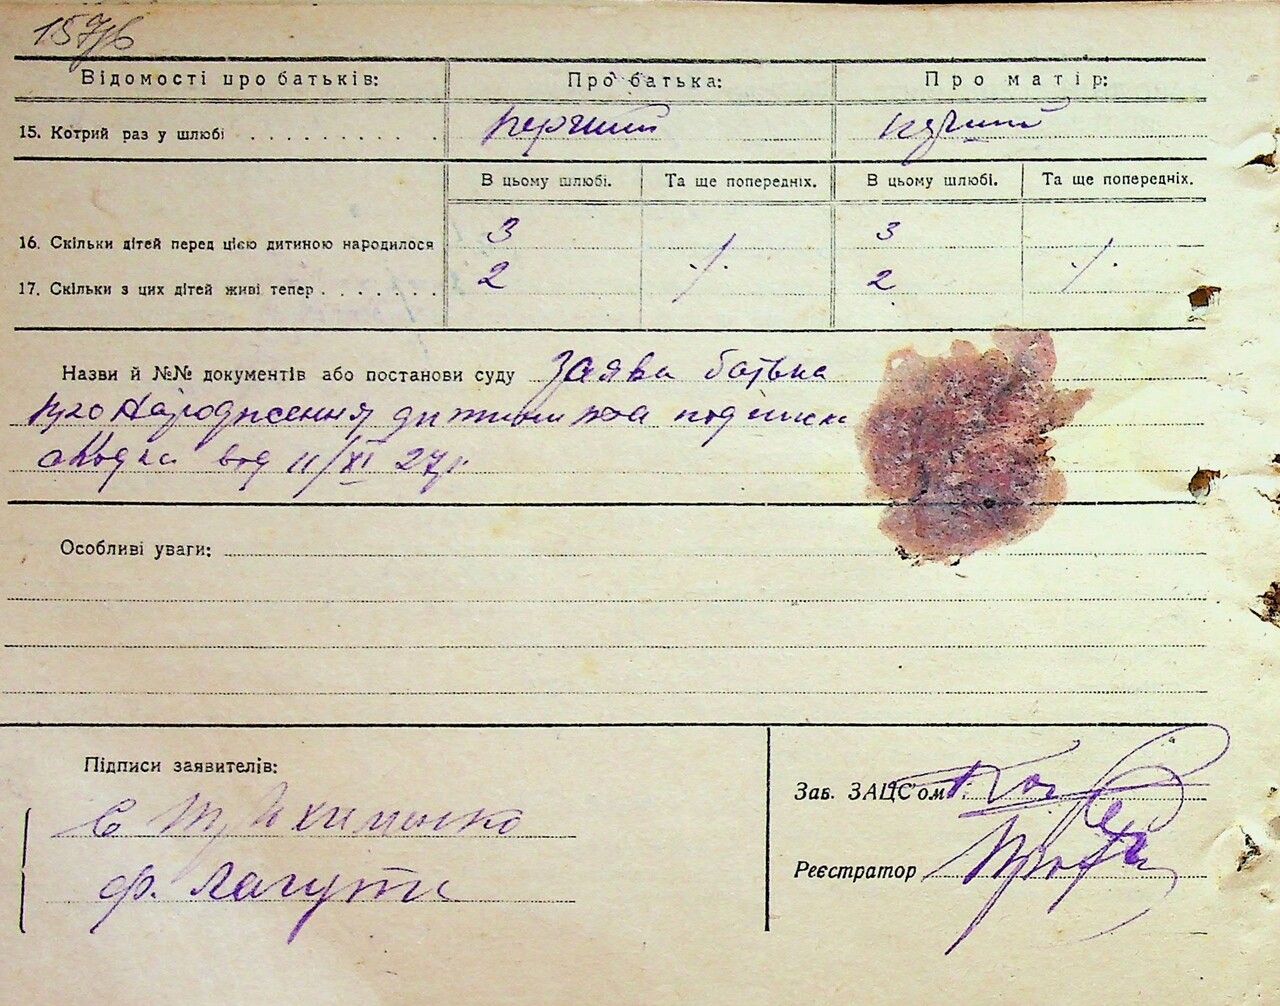 157/б
Відомості про батьків: Про батька: Про матір:
15. Котрий раз у шлюбі . . . . . . . . . . перший перший
В цьому шлюбі. Та ще попередніх. В цьому шлюбі. Та ще попередніх.
16. Скільки дітей перед цією дитиною народилося 3 ⁒ 3 ⁒
17. Скільки з цих дітей живі тепер . . . . . . . 2 2
Назви й №№ документів або постанови суду Заява батька
про народження дитини та подписка
від 11/XI 27р.
Особливі уваги:
Підписи заявителів:
Зав. ЗАЦС'ом:
Є Трихименко
Реєстратор
Ф. Лагута